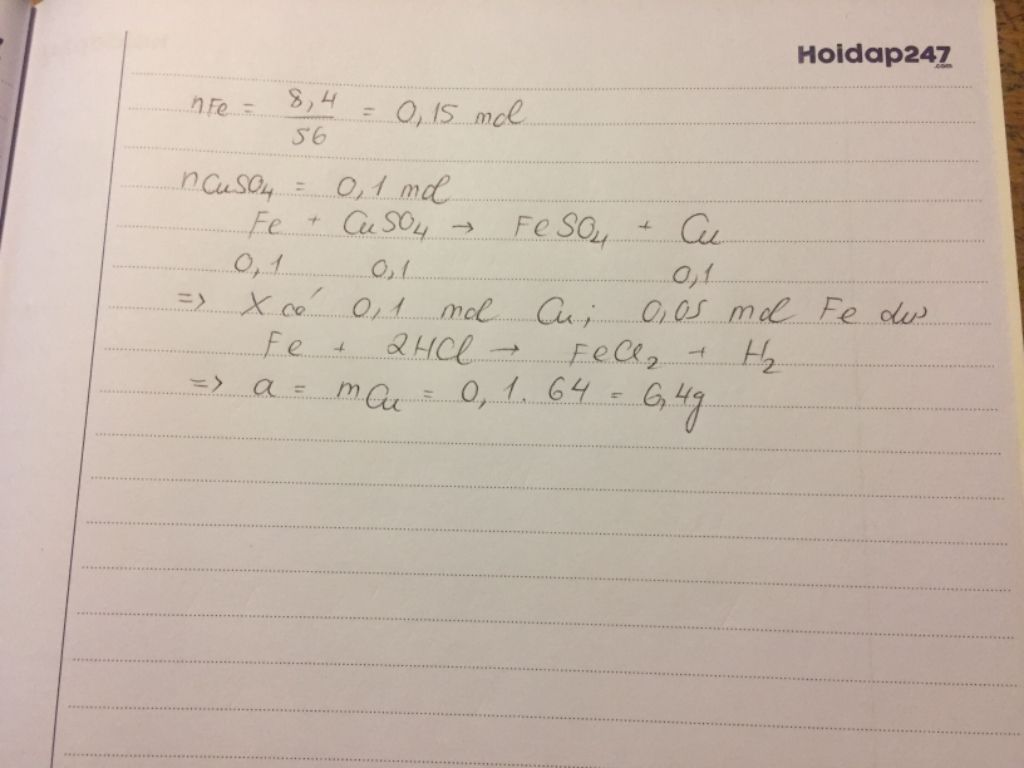 Hoidap247
.com
nFe = 8,4/56 = 0,15 mol
nCuSO4 = 0,1 mol
Fe + CuSO4 → FeSO4 + Cu
0,1 0,1 0,1
=> X có 0,1 mol Cu; 0,05 mol Fe dư
Fe + 2HCl → FeCl2 + H2
=> a = mCu = 0,1. 64 = 6,4g